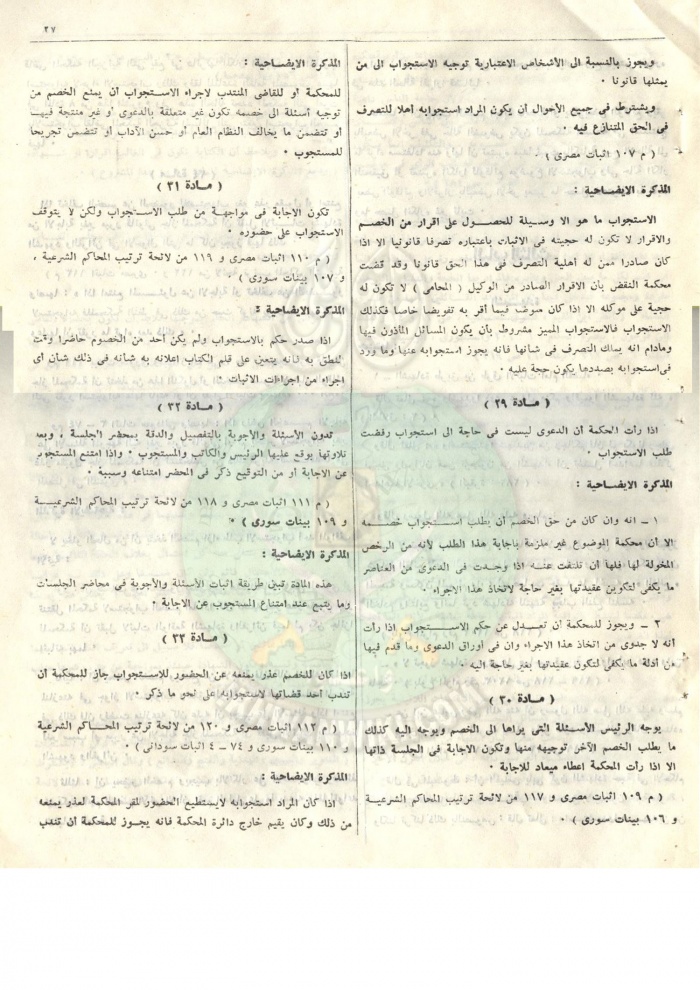 ٢٧
ويجوز بالنسبة الى الأشخاص الاعتبارية توجيه الاستجواب الى من
يمثلها قانونا ٠
ويشترط فى جميع الأحوال أن يكون المراد استجوابه أهلا للتصرف
فى الحق المتنازع فيه ٠
( م ١٠٧ اثبات مصرى ) ٠
المذكرة الايضاحية :
الاستجواب ما هو الا وسيلة للحصول على اقرار من الخصم
والاقرار لا تكون له حجيته فى الاثبات باعتباره تصرفا قانونيا الا اذا
كان صادرا ممن له أهلية التصرف فى هذا الحق قانونا وقد قضت
محكمة النقض بأن الاقرار الصادر من الوكيل ( المحامى ) لا تكون له
حجية على موكله الا اذا كان مفوضا فيما أقر به تفويضا خاصا فكذلك
الاستجواب فالاستجواب المميز مشروط بأن يكون المسائل المأذون فيها
ومادام انه يملك التصرف فى شأنها فانه يجوز استجوابه عنها وما ورد
فى استجوابه بصددها يكون حجة عليه ٠
( مادة ٢٩ )
اذا رأت المحكمة أن الدعوى ليست فى حاجة الى استجواب رفضت
طلب الاستجواب ٠
المذكرة الايضاحية :
١ – انه وان كان من حق الخصم أن يطلب استجواب خصمه
الا أن محكمة الموضوع غير ملزمة باجابة هذا الطلب لأنه من الرخص
المخولة لها فلها أن تلتفت عنه اذا وجدت فى الدعوى من العناصر
ما يكفى لتكوين عقيدتها بغير حاجة لاتخاذ هذا الاجراء ٠
٢ – ويجوز للمحكمة أن تعدل عن حكم الاستجواب اذا رأت
أنه لا جدوى من اتخاذ هذا الاجراء وان فى أوراق الدعوى وما قدم فيها
من أدلة ما يكفى لتكون عقيدتها بغير حاجة اليه ٠
( مادة ٣٠ )
يوجه الرئيس الأسئلة التى يراها الى الخصم ويوجه اليه كذلك
ما يطلب الخصم الآخر توجيهه منها وتكون الاجابة فى الجلسة ذاتها
الا اذا رأت المحكمة اعطاء ميعاد للاجابة ٠
( م ١٠٩ اثبات مصرى و ١١٧ من لائحة ترتيب المحاكم الشرعية
و ١٠٦ بينات سورى ) ٠
المذكرة الايضاحية :
للمحكمة أو للقاضى المنتدب لاجراء الاستجواب أن يمنع الخصم من
توجيه أسئلة الى خصمه تكون غير متعلقة بالدعوى أو غير منتجة فيها
أو تتضمن ما يخالف النظام العام أو حسن الآداب أو تتضمن تجريحا
للمستجوب ٠
( مادة ٣١ )
تكون الاجابة فى مواجهة من طلب الاستجواب ولكن لا يتوقف
الاستجواب على حضوره ٠
( م ١١٠ اثبات مصرى و ١١٩ من لائحة ترتيب المحاكم الشرعية ،
و ١٠٧ بينات سورى ) ٠
المذكرة الايضاحية :
اذا صدر حكم بالاستجواب ولم يكن أحد من الخصوم حاضرا وقت
النطق به فانه يتعين على قلم الكتاب اعلانه به شأنه فى ذلك شأن أى
اجراء من اجراءات الاثبات ٠
( مادة ٣٢ )
تدون الأسئلة والأجوبة بالتفصيل والدقة بمحضر الجلسة ، وبعد
تلاوتها يوقع عليها الرئيس والكاتب والمستجوب ٠ واذا امتنع المستجوب
عن الاجابة أو من التوقيع ذكر فى المحضر امتناعه وسببه ٠
( م ١١١ اثبات مصرى و ١١٨ من لائحة ترتيب المحاكم الشرعية
و ١٠٩ بينات سورى ) ٠
المذكرة الايضاحية :
هذه المادة تبين طريقة اثبات الأسئلة والأجوبة فى محاضر الجلسات
وما يتبع عند امتناع المستجوب عن الاجابة ٠
( مادة ٣٣ )
اذا كان للخصم عذر يمنعه عن الحضور للاستجواب جاز للمحكمة أن
تندب أحد قضاتها لاستجوابه على نحو ما ذكر ٠
( م ١١٢ اثبات مصرى و ١٢٠ من لائحة ترتيب المحاكم الشرعية
و ١١٠ بينات سورى و ٧٤ – ٤ اثبات سودانى ) ٠
المذكرة الايضاحية :
اذا كان المراد استجوابه لا يستطيع الحضور لمقر المحكمة لعذر يمنعه
من ذلك وكان يقيم خارج دائرة المحكمة فانه يجوز للمحكمة أن تندب